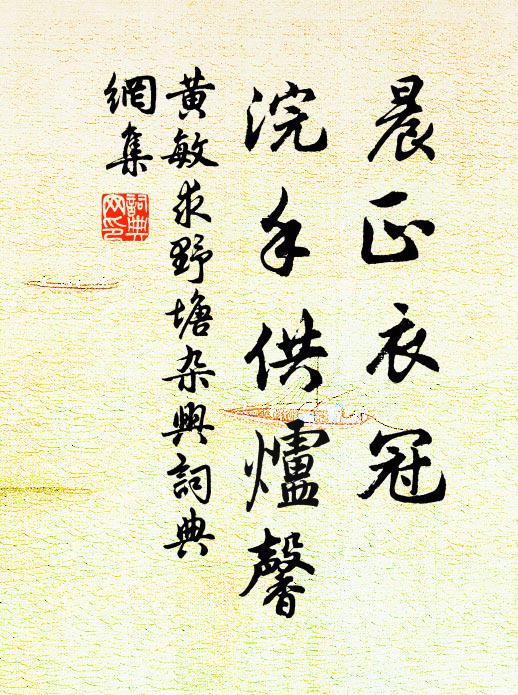 晨正衣冠
浣手供爐馨
黃敏求野塘杂興詞典
網集
詞典
网印